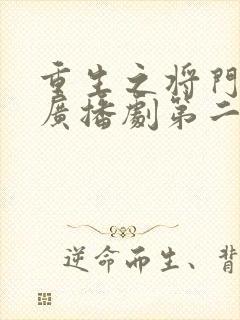 重生之将門
廣播劇第二
逆命而生、背